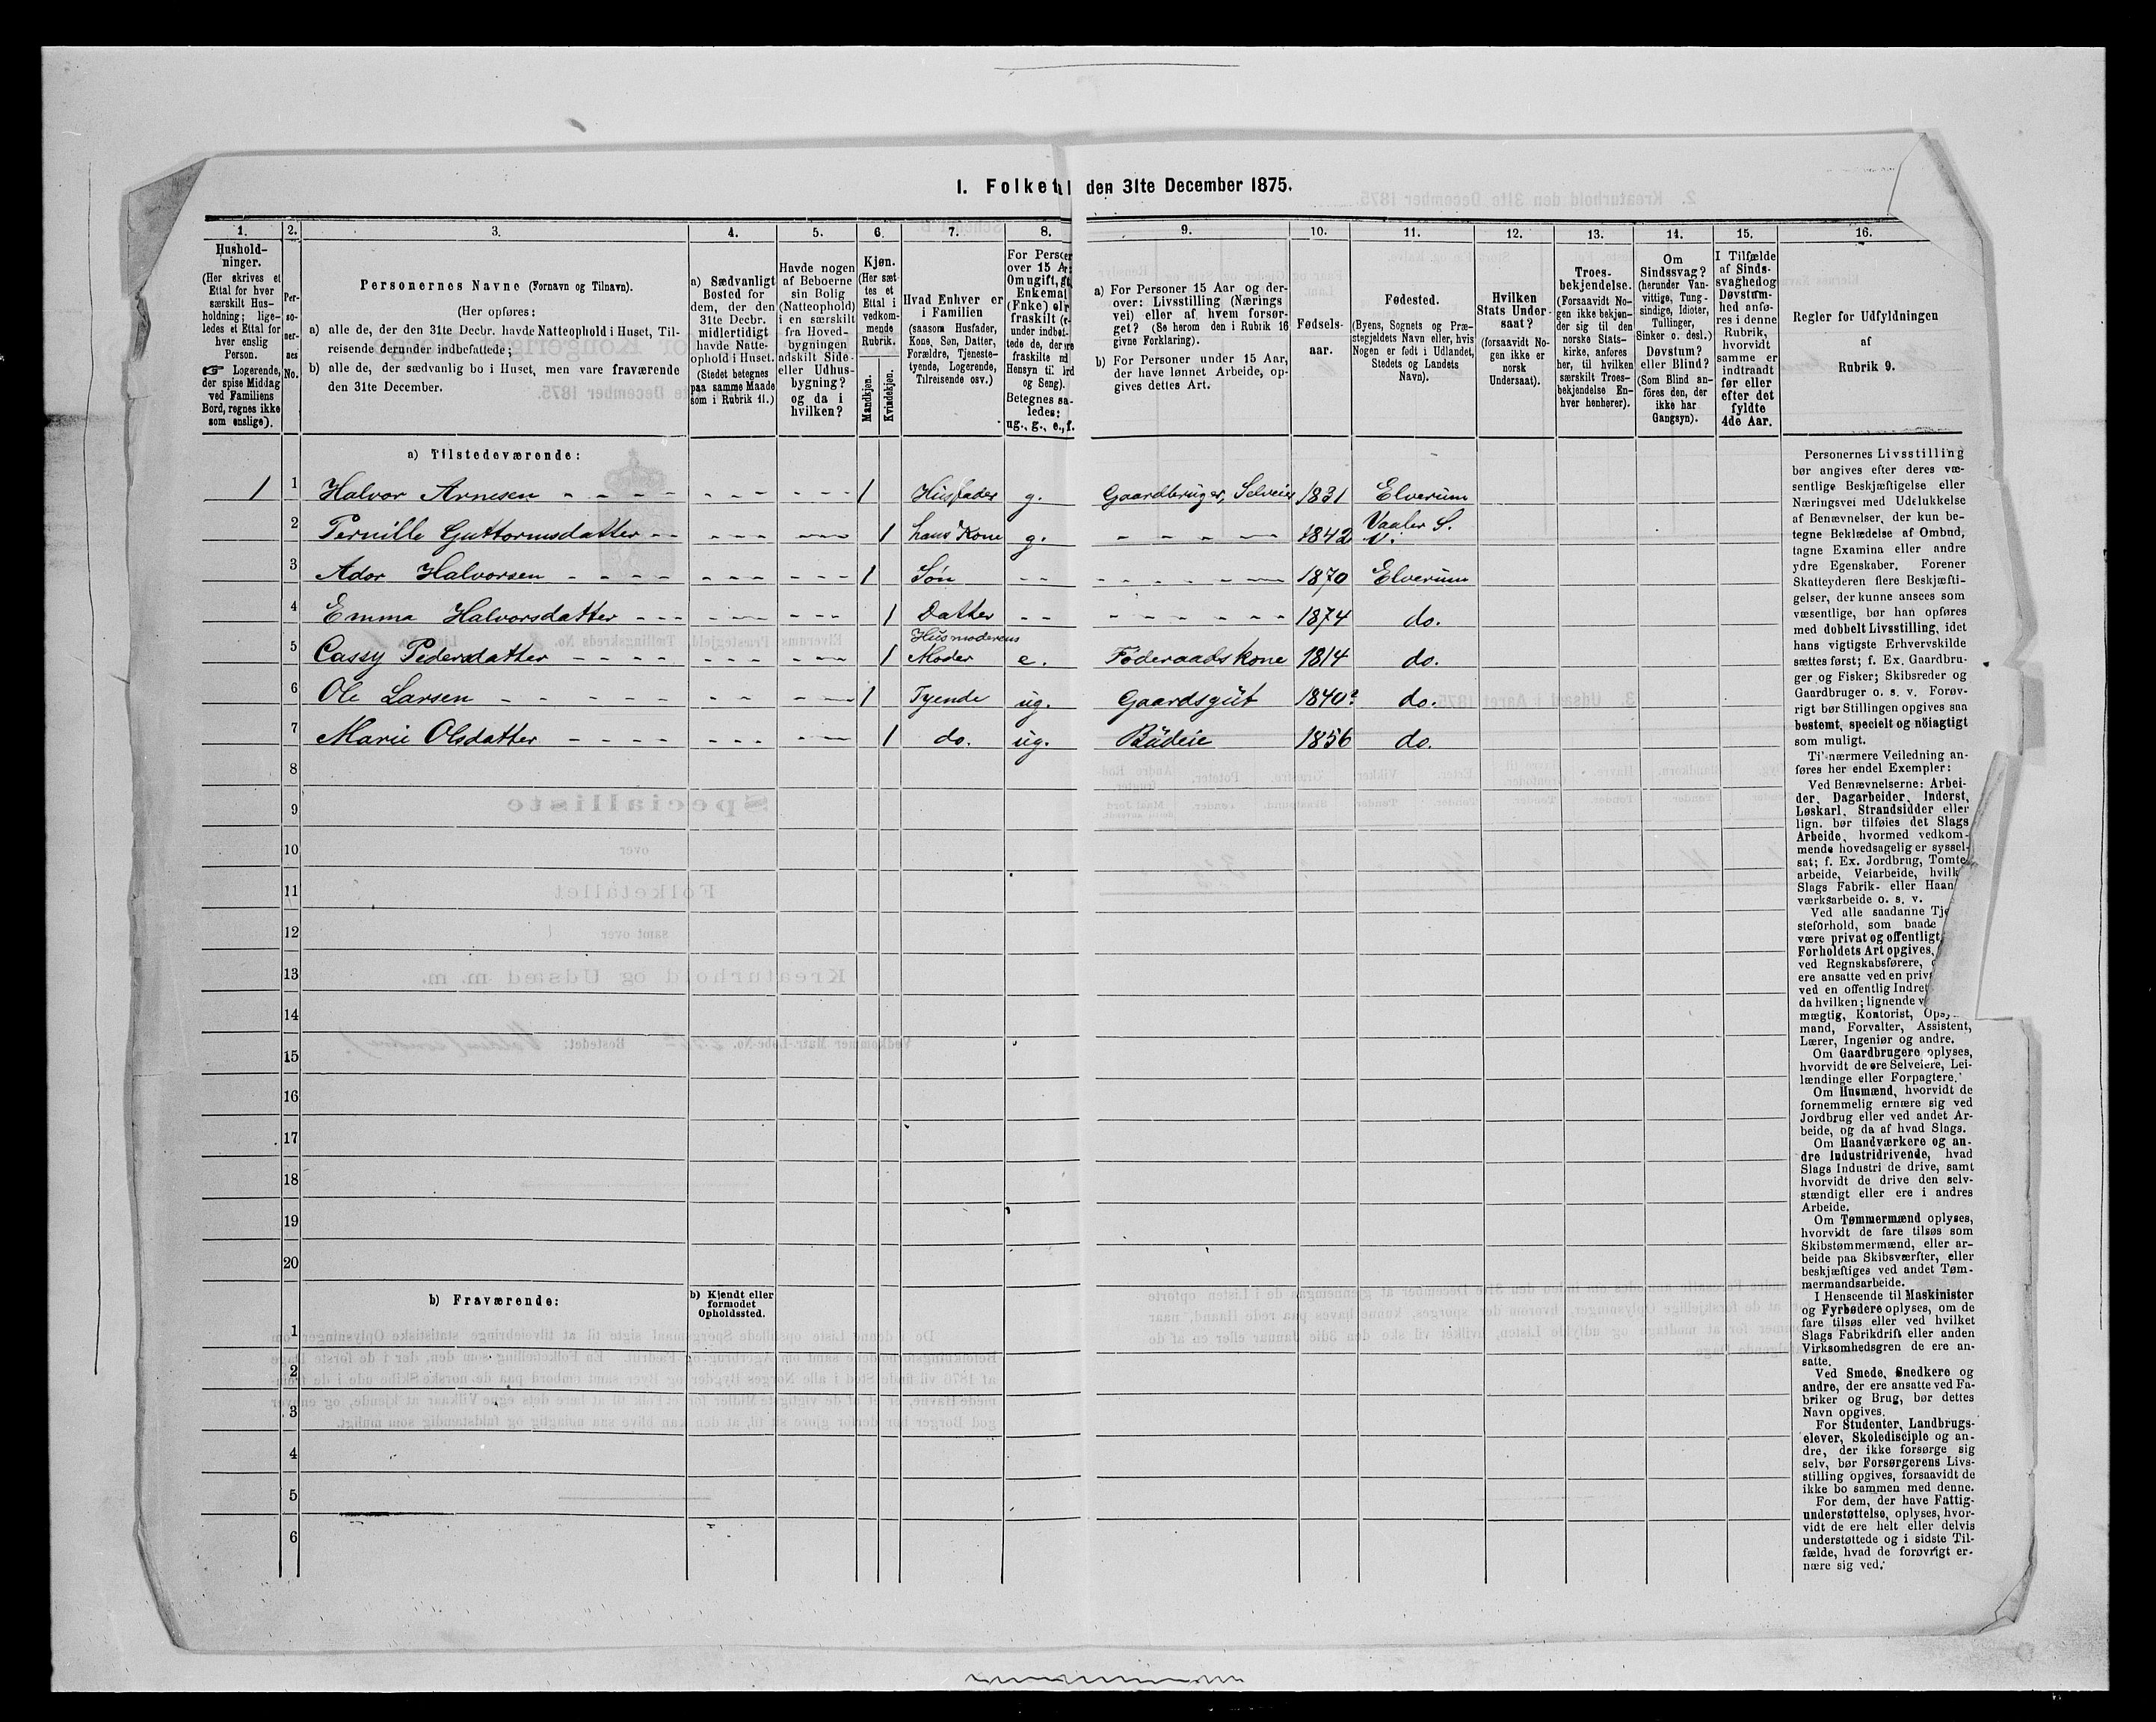 1. Folket den 31te December 1875.
1. 2. 3. 4. 5. 6. 7. 8. 9. 10. 11. 12. 13. 14. 15. 16.
Hushold-
ninger.
(Her skrives et
Ettal for hver
særskilt Hus-
holdning; lige-
ledes et Ettal for
hver enslig
Person.
☞ Logerende,
der spise Middag
ved Familiens
Bord, regnes ikke
som enslige).
Per-
so-
ner-
nes
No.
Personernes Navne (Fornavn og Tilnavn).
(Her opføres:
a) alle de, der den 31te Decbr. havde Natteophold i Huset, Til-
reisende derunder indbefattede;
b) alle de, der sædvanlig bo i Huset, men vare fraværende
den 31te December.
a) Sædvanligt
Bosted for
dem, der den
31te Decbr.
midlertidigt
havde Natte-
ophold i Huset.
(Stedet betegnes
paa samme Maade
som i Rubrik 11.)
Havde nogen
af Beboerne
sin Bolig
(Natteophold)
i en særskilt
fra Hoved-
bygningen
adskilt Side-
eller Udhus-
bygning?
og da i
hvilken?
Kjøn.
(Her sæt-
tes et
Ettal i
vedkom-
mende
Rubrik.
Mandkjøn.
Kvindekjøn.
Hvad Enhver er
i Familien
(saasom Husfader,
Kone, Søn, Datter,
Forældre, Tjeneste-
tyende, Logerende,
Tilreisende osv.)
For Person
over 15 A
Om ugift, g
Enkema
(Enke) el
fraskilt
under indbet-
tede de, der
fraskilte
Hensyn til
og Seng).
Betegnes sa-
ledes:
ug., g., e., f.
a) For Personer 15 Aar og der-
over: Livsstilling (Nærings
vei) eller af hvem forsør-
get? (Se herom den i Rubrik 16
givne Forklaring).
b) For Personer under 15 Aar,
der have lønnet Arbeide, op-
gives dettes Art.
Fødsels-
aar.
Fødested.
(Byens, Sognets og Præ-
stegjeldets Navn eller, hvis
Nogen er født i Udlandet,
Stedets og Landets
Navn).
Hvilken
Stats Under-
saat?
(forsaavidt No-
gen ikke er
norsk
Undersaat).
Troes-
bekjendelse.
(Forsaavidt No-
gen ikke bekjen-
der sig til den
norske Stats-
kirke, anføres
her, til hvilken
særskilt Troes-
bekjendelse En-
hver henhører).
Om
Sindssvag?
(herunder Van-
vittige, Tung-
sindige, Idioter,
Tullinger,
Sinker o. desl.)
Døvstum?
eller Blind?
(Som Blind an-
føres den, der
ikke har
Gangsyn).
I Tilfælde
af Sinds-
svaghed og
Døvstum-
hed anfø-
res i denne
Rubrik,
hvorvidt
samme er
indtraadt
før eller
efter det
fyldte
4de Aar.
Regler for Udfyldningen
af
Rubrik 9.
a) Tilstedeværende:
1 1 Halvor Arnesen - - - - - - - - - - 1 Husfader g. Gaardbruger, Selveier 1831 Elverum
2 Pernille Guttormsdatter - - - - - - - - 1 hans Kone g. - - - - - 1842 Vaaler S.
3 Ador Halvorsen - - - - - - - - - - 1 Søn - - - - - - - - 1870 Elverum
4 Emma Halvorsdatter - - - - - - - - - 1 Datter - - - - - - - - 1874 do.
5 Cassy Pedersdatter - - - - - - - - - 1 Husmoderens
Moder e. Føderaadskone 1814 do.
6 Ole Larsen - - - - - - - - - 1 Tyende ug. Gaardsgut 1840? do.
7 Marie Olsdatter - - - - - - - - - 1 do. ug. Büdeie 1856 do.
8
9
10
11
12
13
14
15
16
17
18
19
20
b) Fraværende:
b) Kjendt eller
formodet
Opholdssted.
1
2
3
4
5
6
Personernes Livsstilling
bør angives efter deres væ-
sentlige Beskjæftigelse eller
Næringsvei med Udelukkelse
af Benævnelser, der kun be-
tegne Beklædelse af Ombud,
tagne Examina eller andre
ydre Egenskaber. Forener
Skatteyderen flere Beskjæfti-
gelser, der kunne ansees som
væsentlige, bør han opføres
med dobbelt Livsstilling, idet
hans vigtigste Erhvervskilde
sættes først; f. Ex. Gaardbru-
ger og Fisker; Skibsreder og
Gaardbruger o. s. v. Forøv-
rigt bør Stillingen opgives saa
bestemt, specielt og nöiagtigt
som muligt.
Til nærmere Veiledning an-
føres her endel Exempler:
Ved Benævnelserne: Arbei-
der, Dagarbeider, Inderst,
Løskarl, Strandsidder eller
lign. bør tilføies det Slags
Arbeide, hvormed vedkom-
mende hovedsagelig er syssel-
sat; f. Ex. Jordbrug, Tomte-
arbeide, Veiarbeide, hvilk
Slags Fabrik- eller Haan
værksarbeide o. s. v.
Ved alle saadanne Tje
steforhold, som baade
være privat og offentligt,
Forholdets Art opgives,
ved Regnskabsførere,
ere ansatte ved en priv
ved en offentlig Indret
da hvilken; lignende v
mægtig, Kontorist, Ops
mand, Forvalter, Assistent,
Lærer, Ingeniør og andre.
Om Gaardbrugere oplyses,
hvorvidt de ere Selveiere, Lei-
lændinge eller Forpagtere.
Om Husmænd, hvorvidt de
fornemmelig ernære sig ved
Jordbrug eller ved andet Ar-
beide, og da af hvad Slags.
Om Haandværkere og an-
dre Industridrivende, hvad
Slags Industri de drive, samt
hvorvidt de drive den selv-
stændigt eller ere i andres
Arbeide.
Om Tømmermænd oplyses,
hvorvidt de fare tilsøs som
Skibstømmermænd, eller ar-
beide paa Skibsværfter, eller
beskjæftiges ved andet Tøm-
mermandsarbeide.
I Henseende til Maskinister
og Fyrbødere oplyses, om de
fare tilsøs eller ved hvilket
Slags Fabrikdrift eller anden
Virksomhedsgren de ere an-
satte.
Ved Smede, Snedkere og
andre, der ere ansatte ved Fa-
briker og Brug, bør dettes
Navn opgives.
For Studenter, Landbrugs-
elever, Skoledisciple og an-
dre, der ikke forsørge sig
selv, bør Forsørgerens Livs-
stilling opgives, forsaavidt de
ikke bo sammen med denne.
For dem, der have Fattig-
understøttelse, oplyses, hvor-
vidt de ere helt eller delvis
understøttede og i sidste Til-
fælde, hvad de forøvrigt er-
nære sig ved.